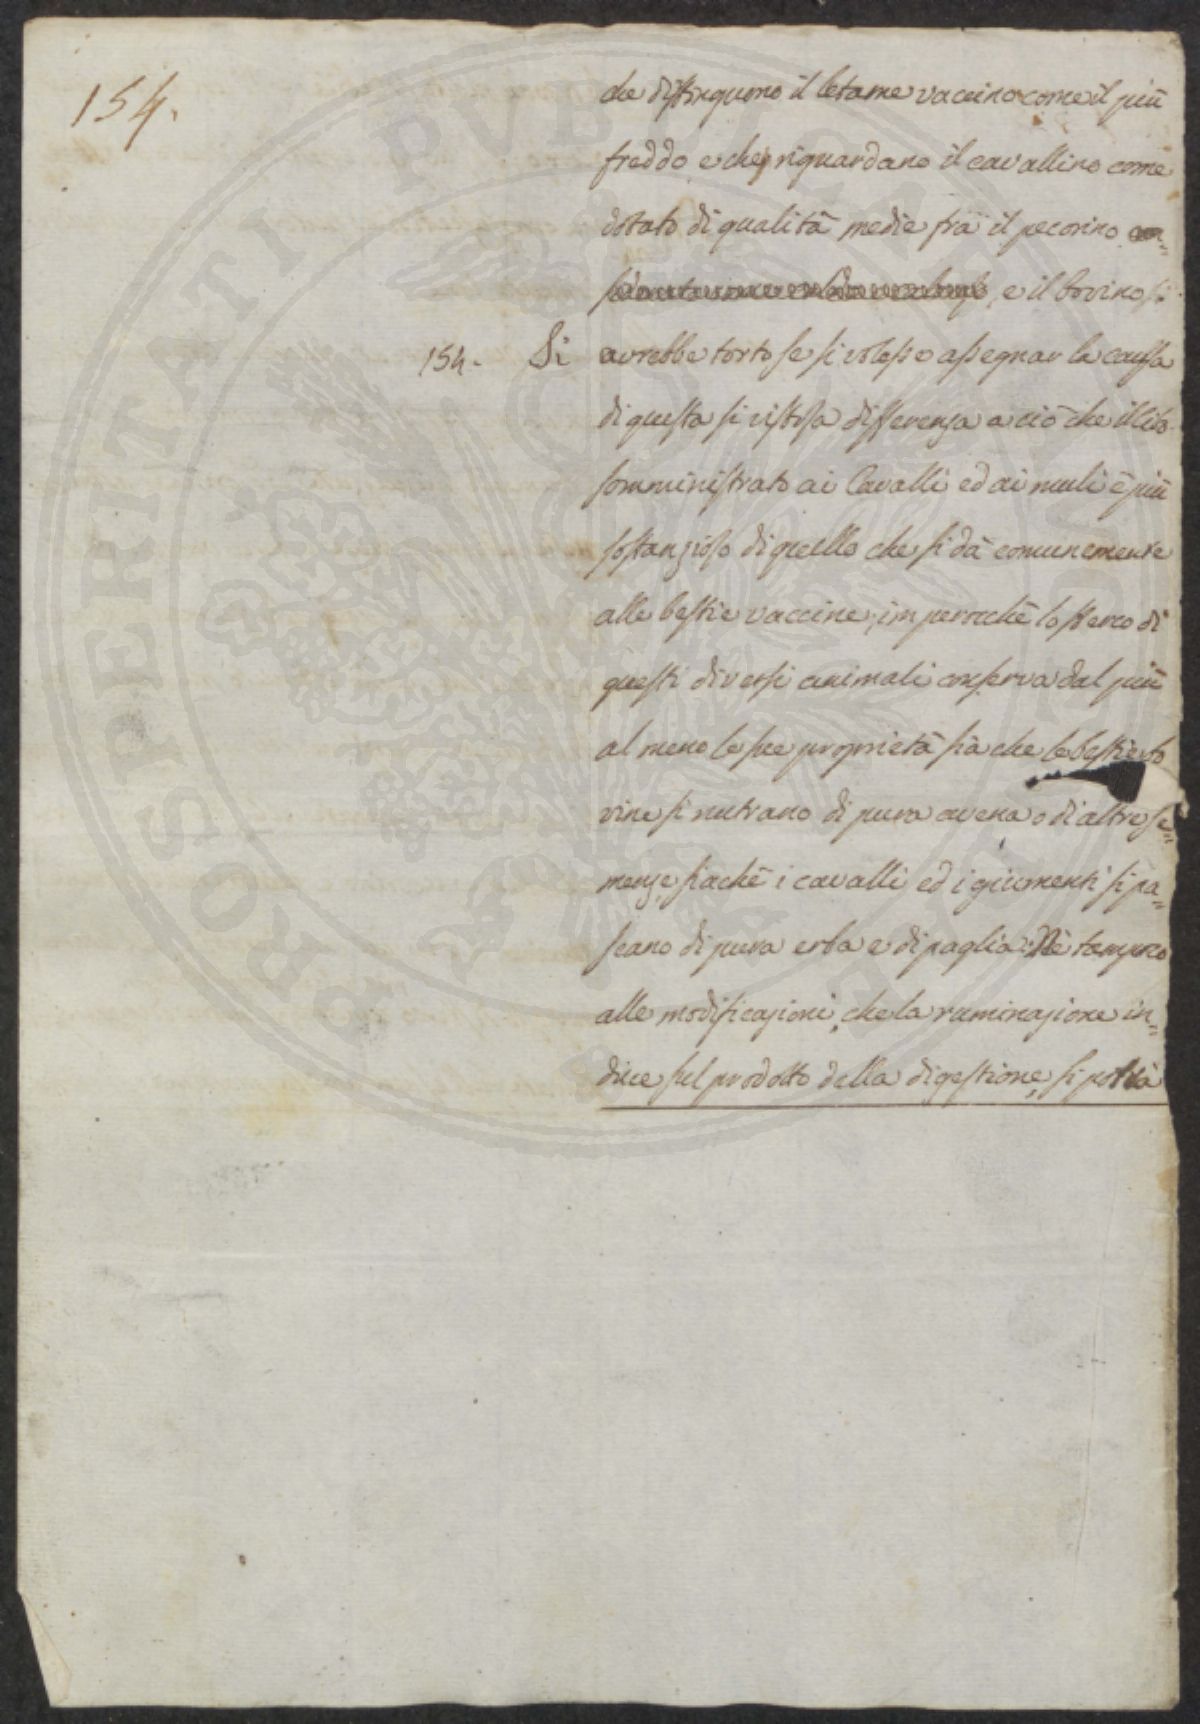 154.
che distinguono il letame vaccino come il più
freddo e che riguardano il cavallino come
dotato di qualità medie fra il pecorino
e il bovino si
154. Si avrebbe torto se si volesse assegnar la caussa
di questa si vistosa differenza a ciò che il cibo
somministrato ai Cavalli ed ai muli è più
sostanzioso di quello che si dà comunemente
alle bestie vaccine; imperocchè lo sterco di
questi diversi animali conserva dal più
al meno le sue proprietà sia che le bestie bo
vine si nutrano di pura avena o di altre se=
menze, siachè i cavalli ed i giumenti si pa=
scano di pura erba e di paglia: Nè tampoco
alle modificazioni, che la ruminazione in=
duce sul prodotto della digestione, si potrà
PROSPERITATI PUBLICAE